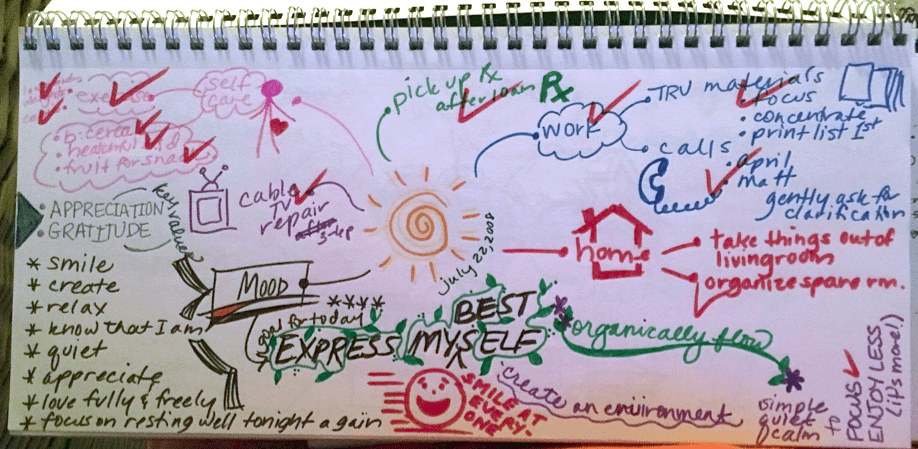 self
care
exercise
b: cereal
heathful
fruit for snack
pick up Rx
after 10am Rx
work
TRU materials
• focus
• concentrate
• print list 1st
calls
• april
• matt
gently ask for
clarification
cable
TV
repair
after
3-4p
key values
• APPRECIATION
• GRATITUDE
* smile
* create
* relax
* know that I am
* quiet
* appreciate
* love fully & freely
* focus on resting well tonight again
MOOD
****
goal for today
EXPRESS MY BEST
SELF
july 22, 2008
home
take things out of
livingroom
organize spare rm.
organically flow
SMILE AT
EVERY-
ONE
create an environment
simple
quiet
calm
to
FOCUS
ENJOY LESS
(it's more!)